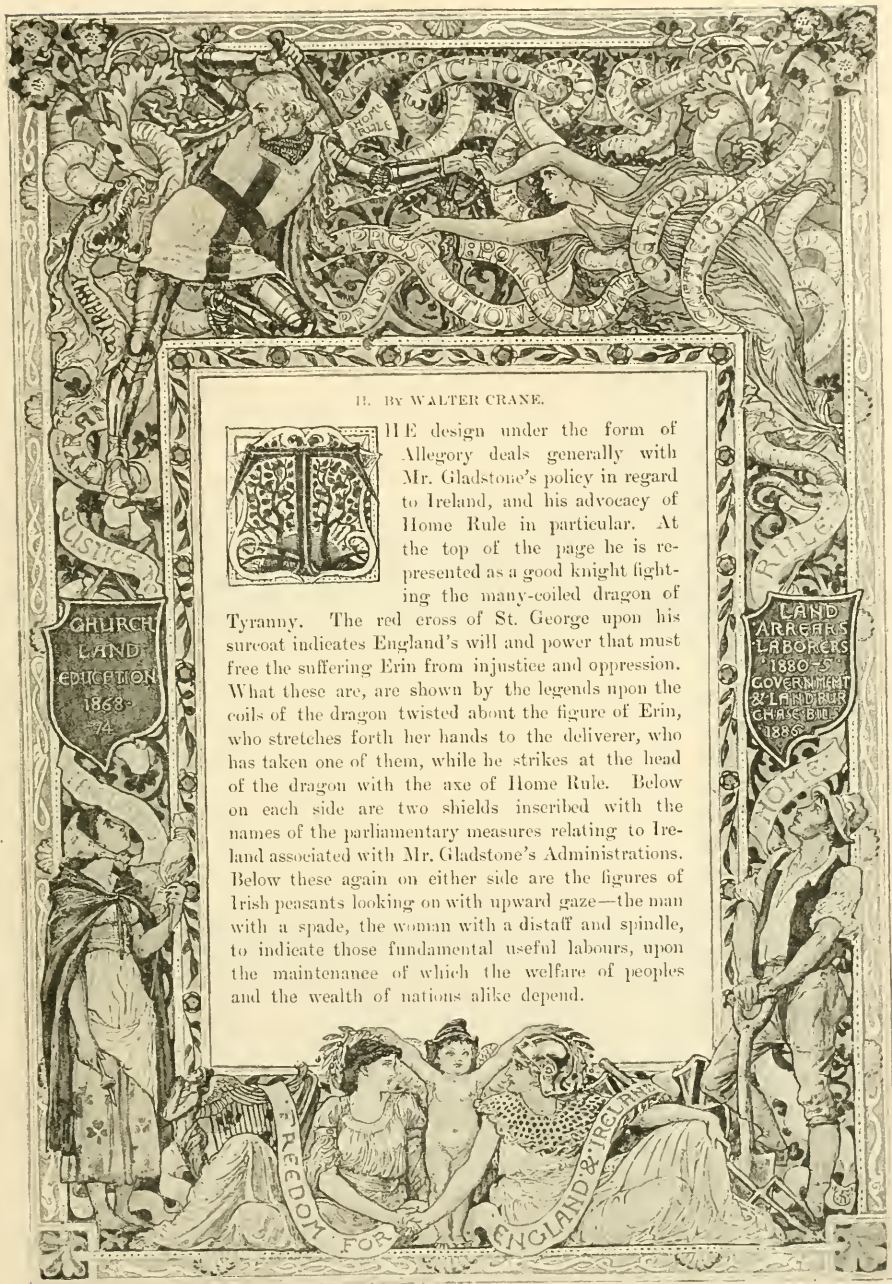 RACK RE
EVICTIONS
HOME
RULE
COERCION
CASTLE GOVERNMENT
PROSECUTION
PRISON
POLICE
BRUTAL
TYRANNY
TYRAN
JUSTICE
RULE
CHURCH
LAND
EDUCATION
1868-
74
LAND
ARREARS
LABORERS
1880-5
GOVERNMENT
& LAND PUR
CHASE BILLS
1886
HOME
II. BY WALTER CRANE.
THE design under the form of
Allegory deals generally with
Mr. Gladstone's policy in regard
to Ireland, and his advocacy of
Home Rule in particular. At
the top of the page he is re-
presented as a good knight fight-
ing the many-coiled dragon of
Tyranny. The red cross of St. George upon his
surcoat indicates England's will and power that must
free the suffering Erin from injustice and oppression.
What these are, are shown by the legends upon the
coils of the dragon twisted about the figure of Erin,
who stretches forth her hands to the deliverer, who
has taken one of them, while he strikes at the head
of the dragon with the axe of Home Rule. Below
on each side are two shields inscribed with the
names of the parliamentary measures relating to Ire-
land associated with Mr. Gladstone's Administrations.
Below these again on either side are the figures of
Irish peasants looking on with upward gaze—the man
with a spade, the woman with a distaff and spindle,
to indicate those fundamental useful labours, upon
the maintenance of which the welfare of peoples
and the wealth of nations alike depend.
FREEDOM FOR
ENGLAND & IRELAND